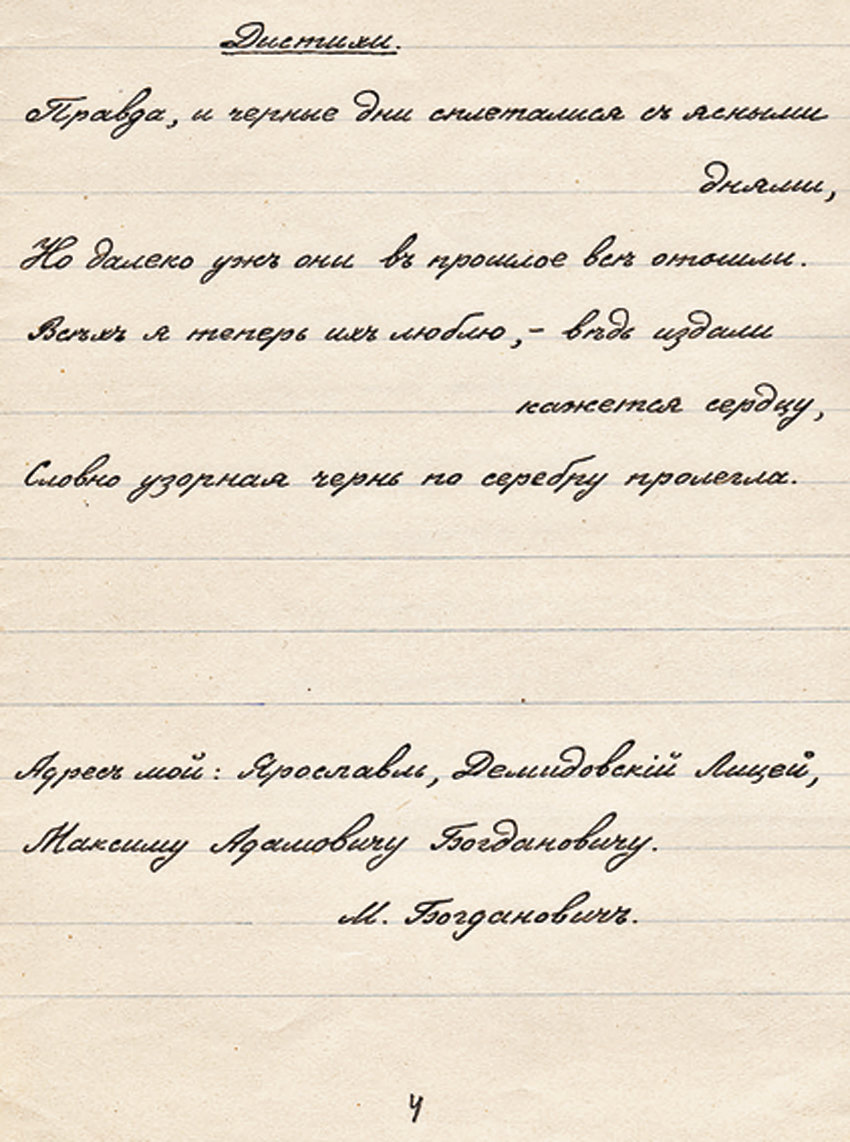 Дистихи.
Правда, и черные дни сплеталися съ ясными
днями,
Но далеко ужъ они въ прошлое всѣ отошли.
Всѣхъ я теперь ихъ люблю,– вѣдь издали
кажется сердцу,
Словно узорная чернь по серебру пролегла.
Адресъ мой: Ярославль, Демидовскій Лицей,
Максиму Адамовичу Богдановичу.
М. Богдановичъ.
4